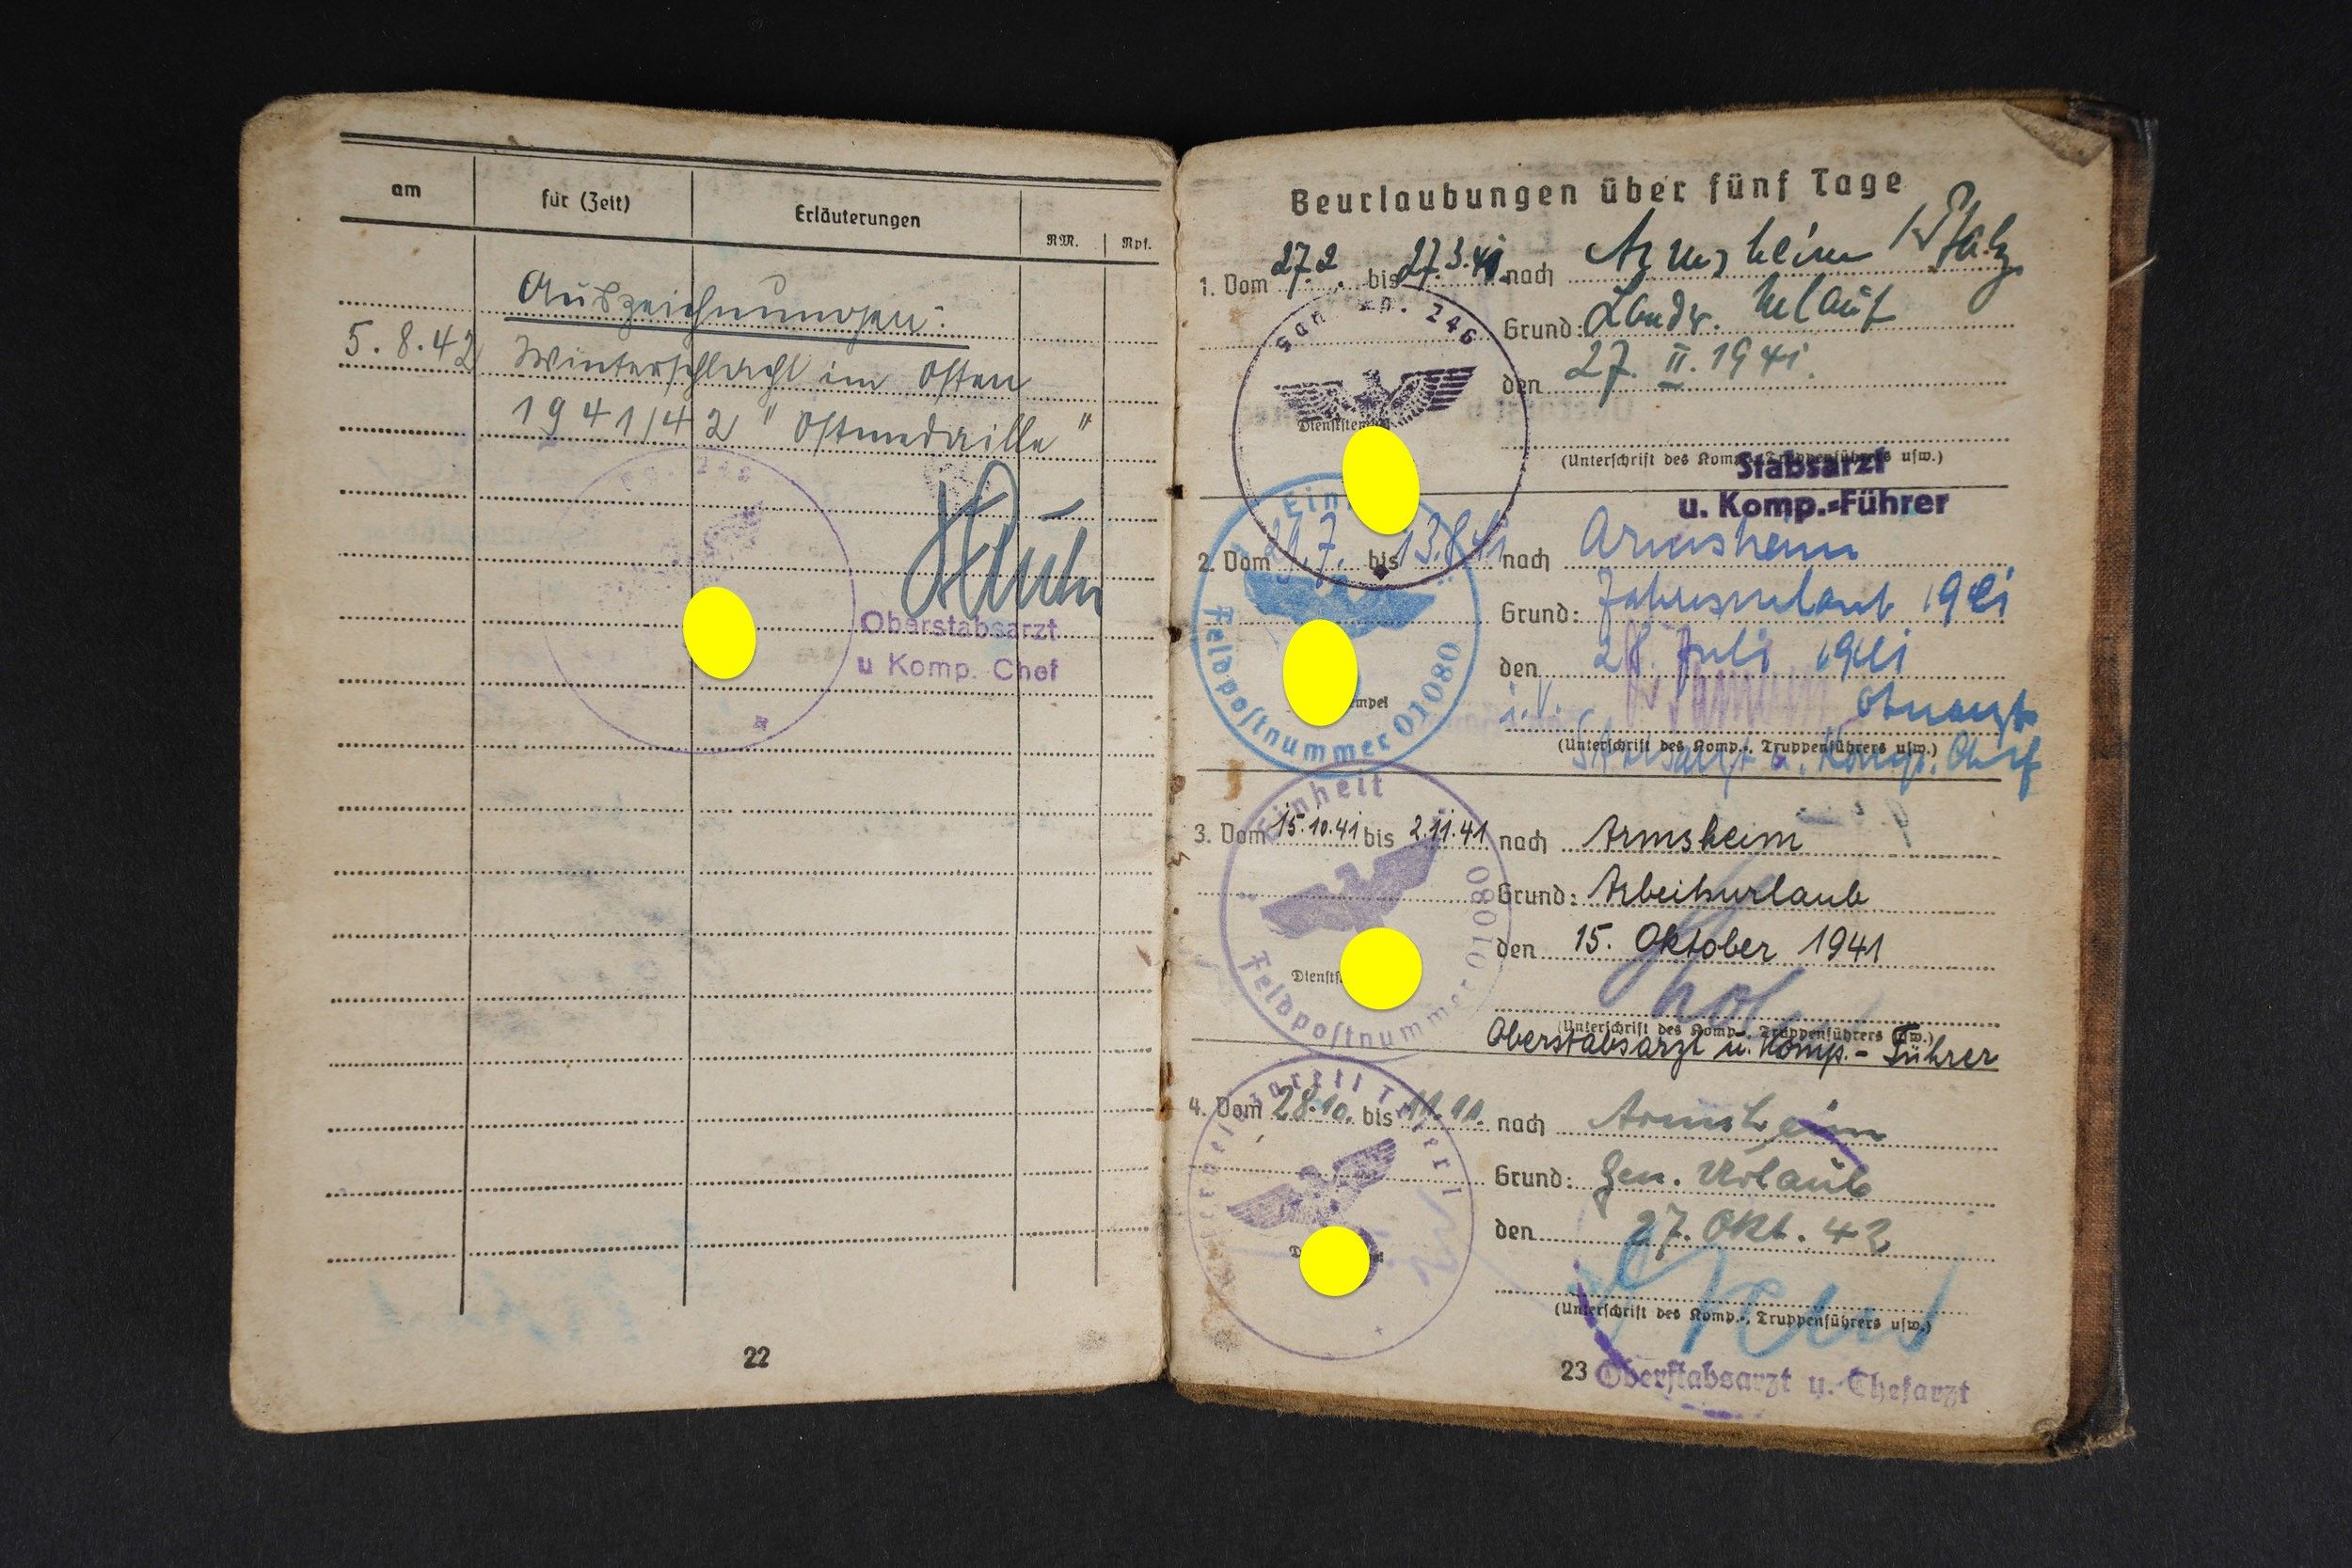 am für (Zeit) Erläuterungen RM. Rpf.
Auszeichnungen:
5.8.42 Winterschlacht im Osten
1941/42 "Ostmedaille"
246
Oberstabsarzt
u Komp. Chef
22
Beurlaubungen über fünf Tage
1. Vom 27.2. bis 27.3.41 nach Armsheim /Pfalz
246
Grund: Landw. Urlaub
den 27. II. 1941.
(Unterschrift des Komp.-, Truppenführers usw.)
Stabsarzt
u. Komp.-Führer
2. Vom bis nach Armsheim
Grund: Jahresurlaub 1941
den 28. Juli 1941
Feldpostnummer 01080
i.V.
(Unterschrift des Komp.-, Truppenführers usw.)
Stabsarzt u. Komp. Chef
Einheit
3. Vom 15.10.41 bis 2.11.41 nach Armsheim
Grund: Arbeitsurlaub
den 15. Oktober 1941
Feldpostnummer 01080
(Unterschrift des Komp.-, Truppenführers usw.)
Oberstabsarzt u. Komp.-Führer
4. Vom 28.10. bis nach Armsheim
Grund: Gen. Urlaub
den 27. Okt. 42
(Unterschrift des Komp.-, Truppenführers usw.)
23 Oberstabsarzt u. Chefarzt